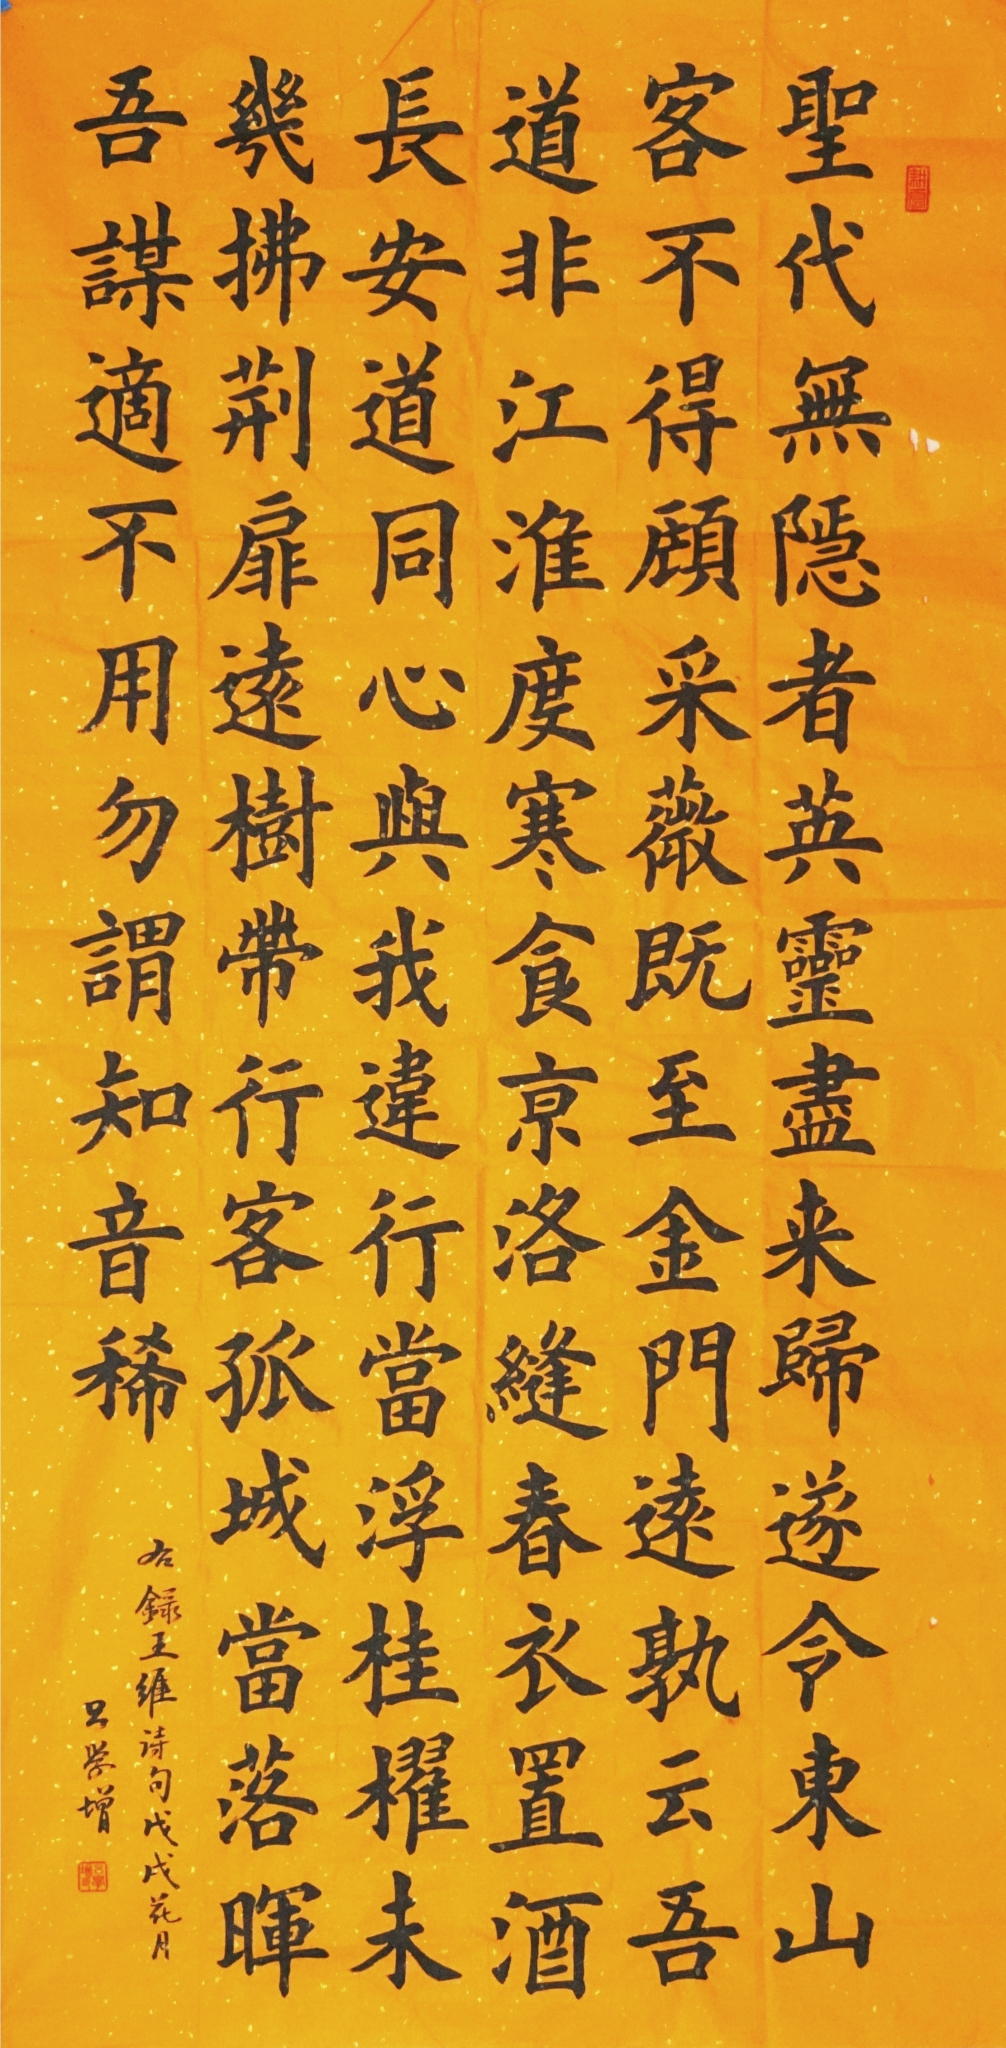 聖代無隠者英靈盡来歸遂令東山
客不得顧采薇既至金門遠孰云吾
道非江淮度寒食京洛縫春衣置酒
長安道同心與我違行當浮桂櫂未
幾拂荆扉遠樹帶行客孤城當落暉
吾謀適不用勿謂知音稀
右録王維诗句戊戌花月
吕学增